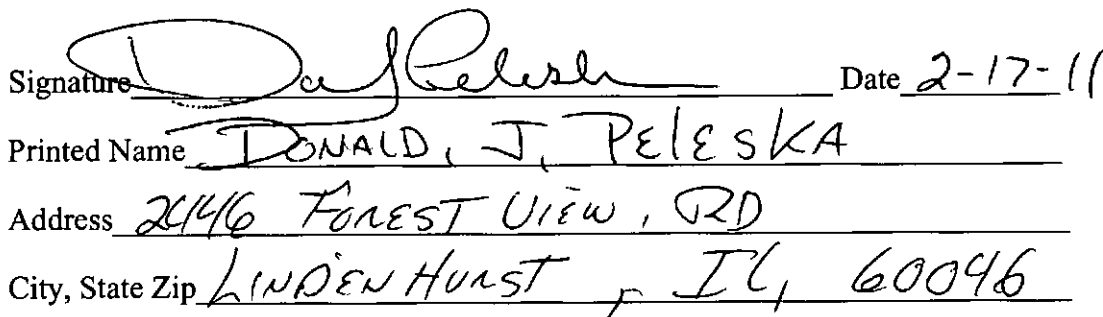 Signature Date 2-17-11
Printed Name DONALD, J, PELESKA
Address 2446 FOREST VIEW, RD
City, State Zip LINDENHURST, IL, 60046